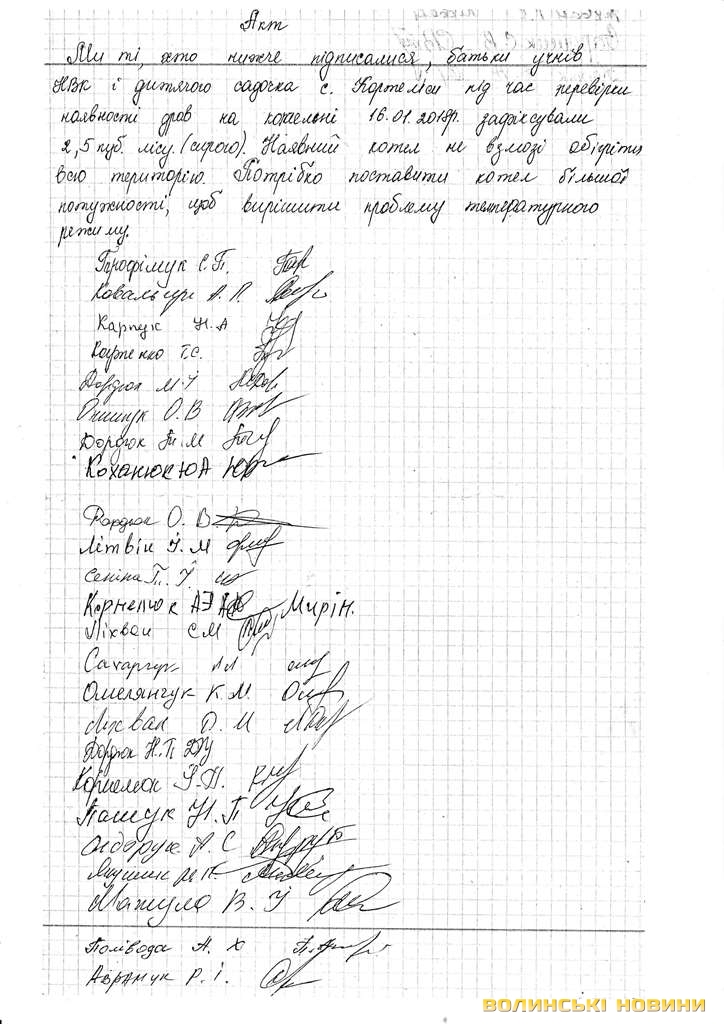 Акт
Ми ті, хто нижче підписалися, батьки учнів
НВК і дитячого садочка с. Кортеліси під час перевірки
наявності дров на котельні 16.01.2018р. зафіксували
2,5 куб. лісу. (сирого). Наявний котел не взмозі обігріти
всю територію. Потрібно поставити котел більшої
потужності, щоб вирішити проблему температурного
режиму.
Трофімук Є.П.
Ковальчук А. П.
Карпук Н.А
Карпенко Т.С.
Дордюк М.І
Онищук О.В
Дордюк Т.М
Коханюк ЮА
Дордюк О. В
Літвін І. М
Сеніна Т. І.
Корнелюк АЭ Мирін.
Ліхван СМ
Сахарчук
Омелянчук К.М.
Ліхван О. М
Дордюк Н.П
Корнелюк І.П.
Пащук Н. П
Сидорук А. С
Мажула В. І
Полівода А. Х
Аврамук Р. І.
ВОЛИНСЬКІ НОВИНИ